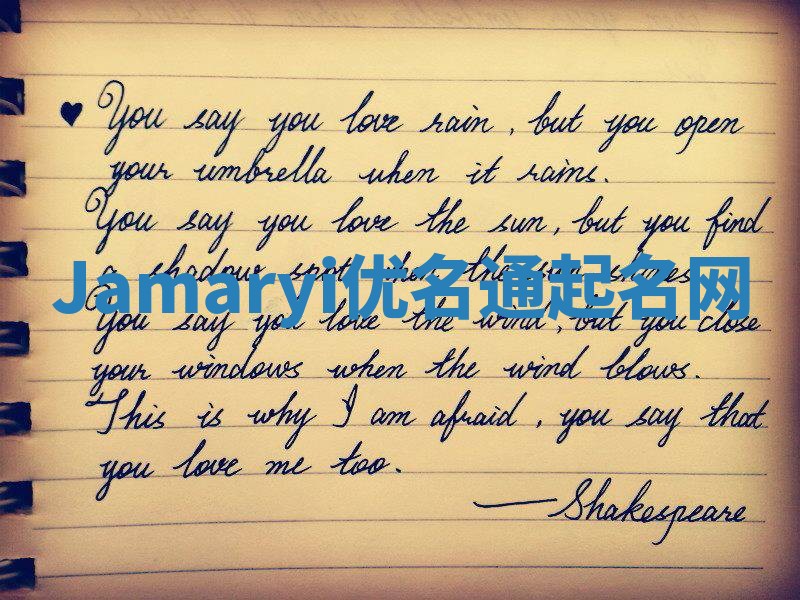 ♥ You say you love rain, but you open
your umbrella when it rains.
You say you love the sun, but you find
a shadow spot when the sun shines.
Jamaryi优名通起名网
You say you love the wind, but you close
your windows when the wind blows.
This is why I am afraid, you say that
you love me too.
—Shakespeare